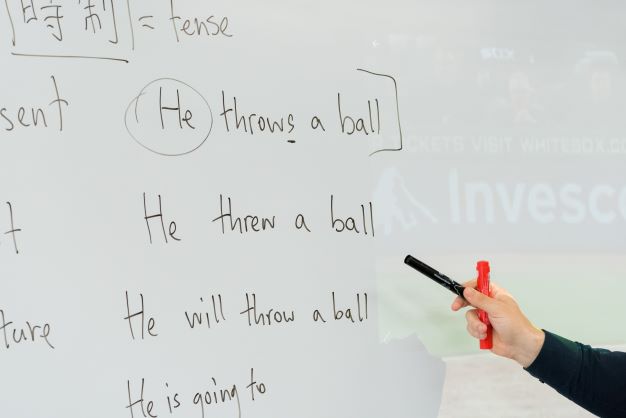 時制 = tense
sent He throws a ball
t He threw a ball
ture He will throw a ball
He is going to
CKETS VISIT WHITEBOX.CO
Invesco